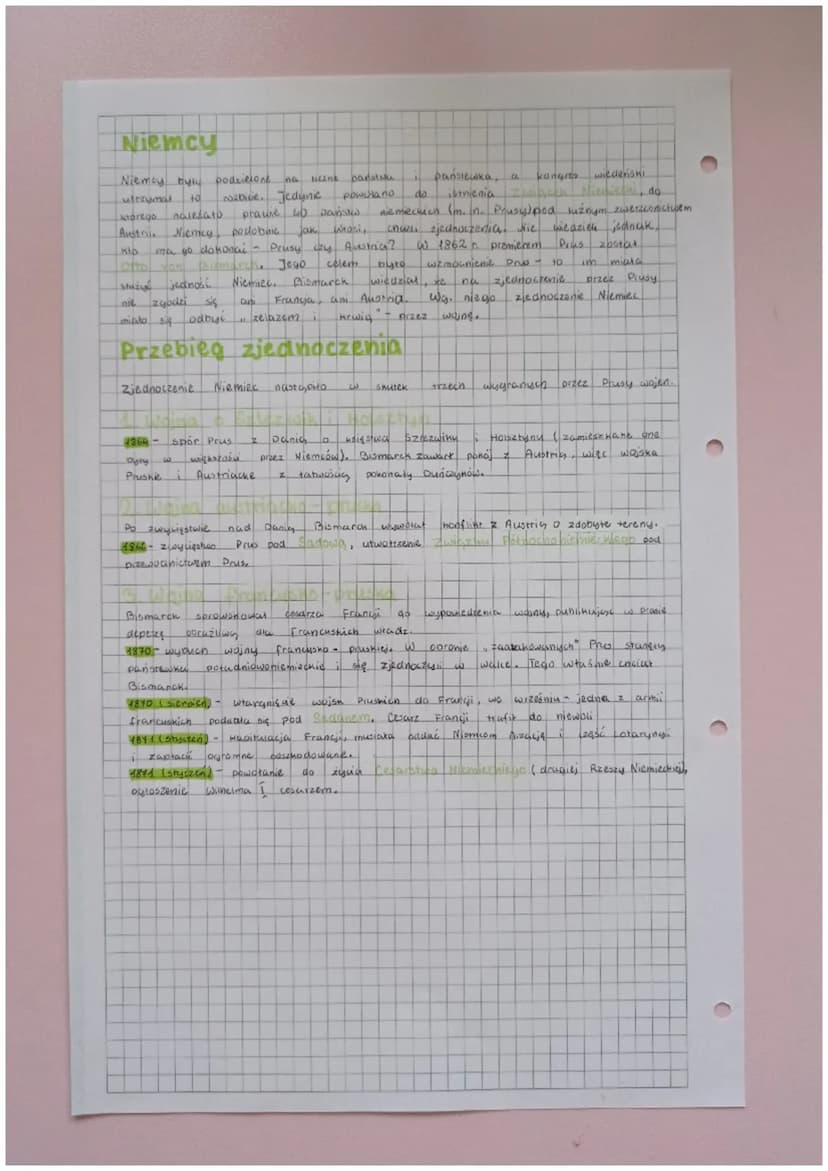 Niemcy
Niemcy były podzielone na liczne państwa i państewka, a kongres wiedeński
utrzymał to rozbicie. Jedynie powołano do istnienia Związek Niemiecki, do
którego należało prawie 40 państw niemieckich (m.in. Prusy) pod luźnym zwierzchnictwem
Austrii. Niemcy, podobnie jak Włosi, chcieli zjednoczenia. Nie wiedzieli jednak,
kto ma go dokonać - Prusy czy Austria? W 1862 r. premierem Prus został
Otto von Bismarck. Jego celem było wzmocnienie Prus - to im miała
służyć jedność Niemiec. Bismarck wiedział, że na zjednoczenie przez Prusy
nie zgodzi się ani Francja, ani Austria. Wg. niego zjednoczenie Niemiec
miało się odbyć "żelazem i krwią" - przez wojnę.
Przebieg zjednoczenia
Zjednoczenie Niemiec nastąpiło w skutek trzech wygranych przez Prusy wojen.
1. Wojna o Szlezwik i Holsztyn
1864 - spór Prus z Danią o księstwa Szlezwiku i Holsztynu (zamieszkane one
były w większości przez Niemców). Bismarck zawarł pokój z Austrią, więc wojska
Pruskie i Austriackie z łatwością pokonały Duńczyków.
2. Wojna austriacko-pruska
Po zwycięstwie nad Danią Bismarck wywołał konflikt z Austrią o zdobyte tereny.
1866 - zwycięstwo Prus pod Sadową, utworzenie Związku Północnoniemieckiego pod
przewodnictwem Prus.
3. Wojna francusko-pruska
Bismarck sprowokował cesarza Francji do wypowiedzenia wojny, publikując w prasie
depeszę obraźliwą dla francuskich władz.
1870 - wybuch wojny francusko-pruskiej. W obronie "zaatakowanych" Prus stanęły
państewka południowoniemieckie i się zjednoczyły w walce. Tego właśnie chciał
Bismarck.
1870 (sierpień) - wtargnięcie wojsk Pruskich do Francji, we wrześniu - jedna z armii
francuskich poddała się pod Sedanem. Cesarz Francji trafił do niewoli
1871 (styczeń) - kapitulacja Francji, musiała oddać Niemcom Alzację i część Lotaryngii
i zapłacić ogromne odszkodowanie.
1871 (styczeń) - powołanie do życia Cesarstwa Niemieckiego (drugiej Rzeszy Niemieckiej),
ogłoszenie Wilhelma I cesarzem.